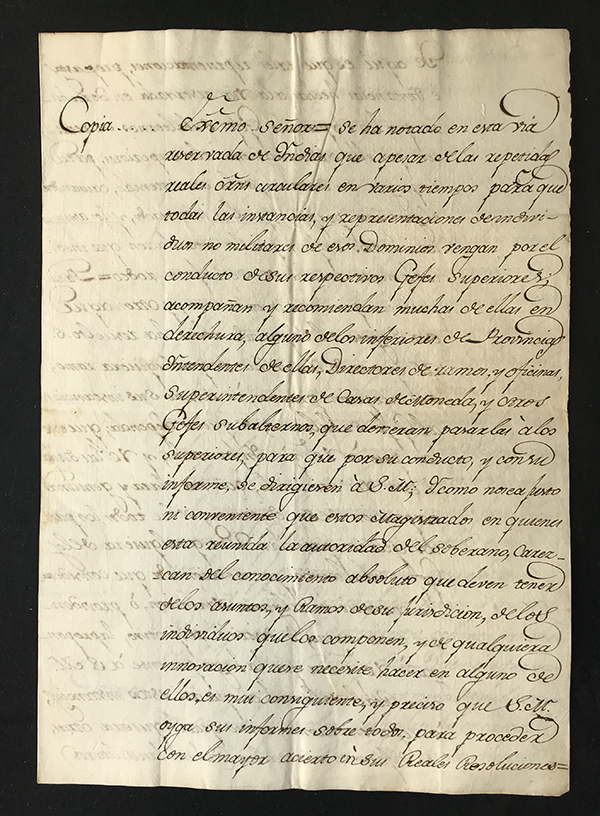 Copia. Exm̃o Señor= se ha notado en esta via
reservada de Indias que apesar de las repetidas
reales orñs circulares en varios tiempos parã que
todas las instancias, y representaciones de indivi-
duos no militares de esos Dominios vengan por el
conducto de sus respectivos Gefes Superiores;
acompañan y recomiendan muchas de ellas en
derechura, alguno de los inferiores de Provincias
Intendentes de ellas, Directores de ramos, y oficinas,
Superintendentes de Casas de Moneda, y otros
Gefes subalternos, que devieran pasarlas à los
superiores, para que por su conducto, y con su
informe, se dirigiesen à S. M.; Y como no sea justo
ni conveniente que estos Magistrados en quienes
esta reunida la autoridad del soberano, Carez-
can del conocimiento absoluto que deven tener
de los asuntos, y Ramos de su jurisdicion, de los
individuos que los componen, y de qualquiera
innovacion que se necesite hacer en alguno de
ellos, es mui consiguiente, y preciso que S. M.
oyga sus informes sobre todo, para proceder
con el mayor acierto en sus Reales Resoluciones=